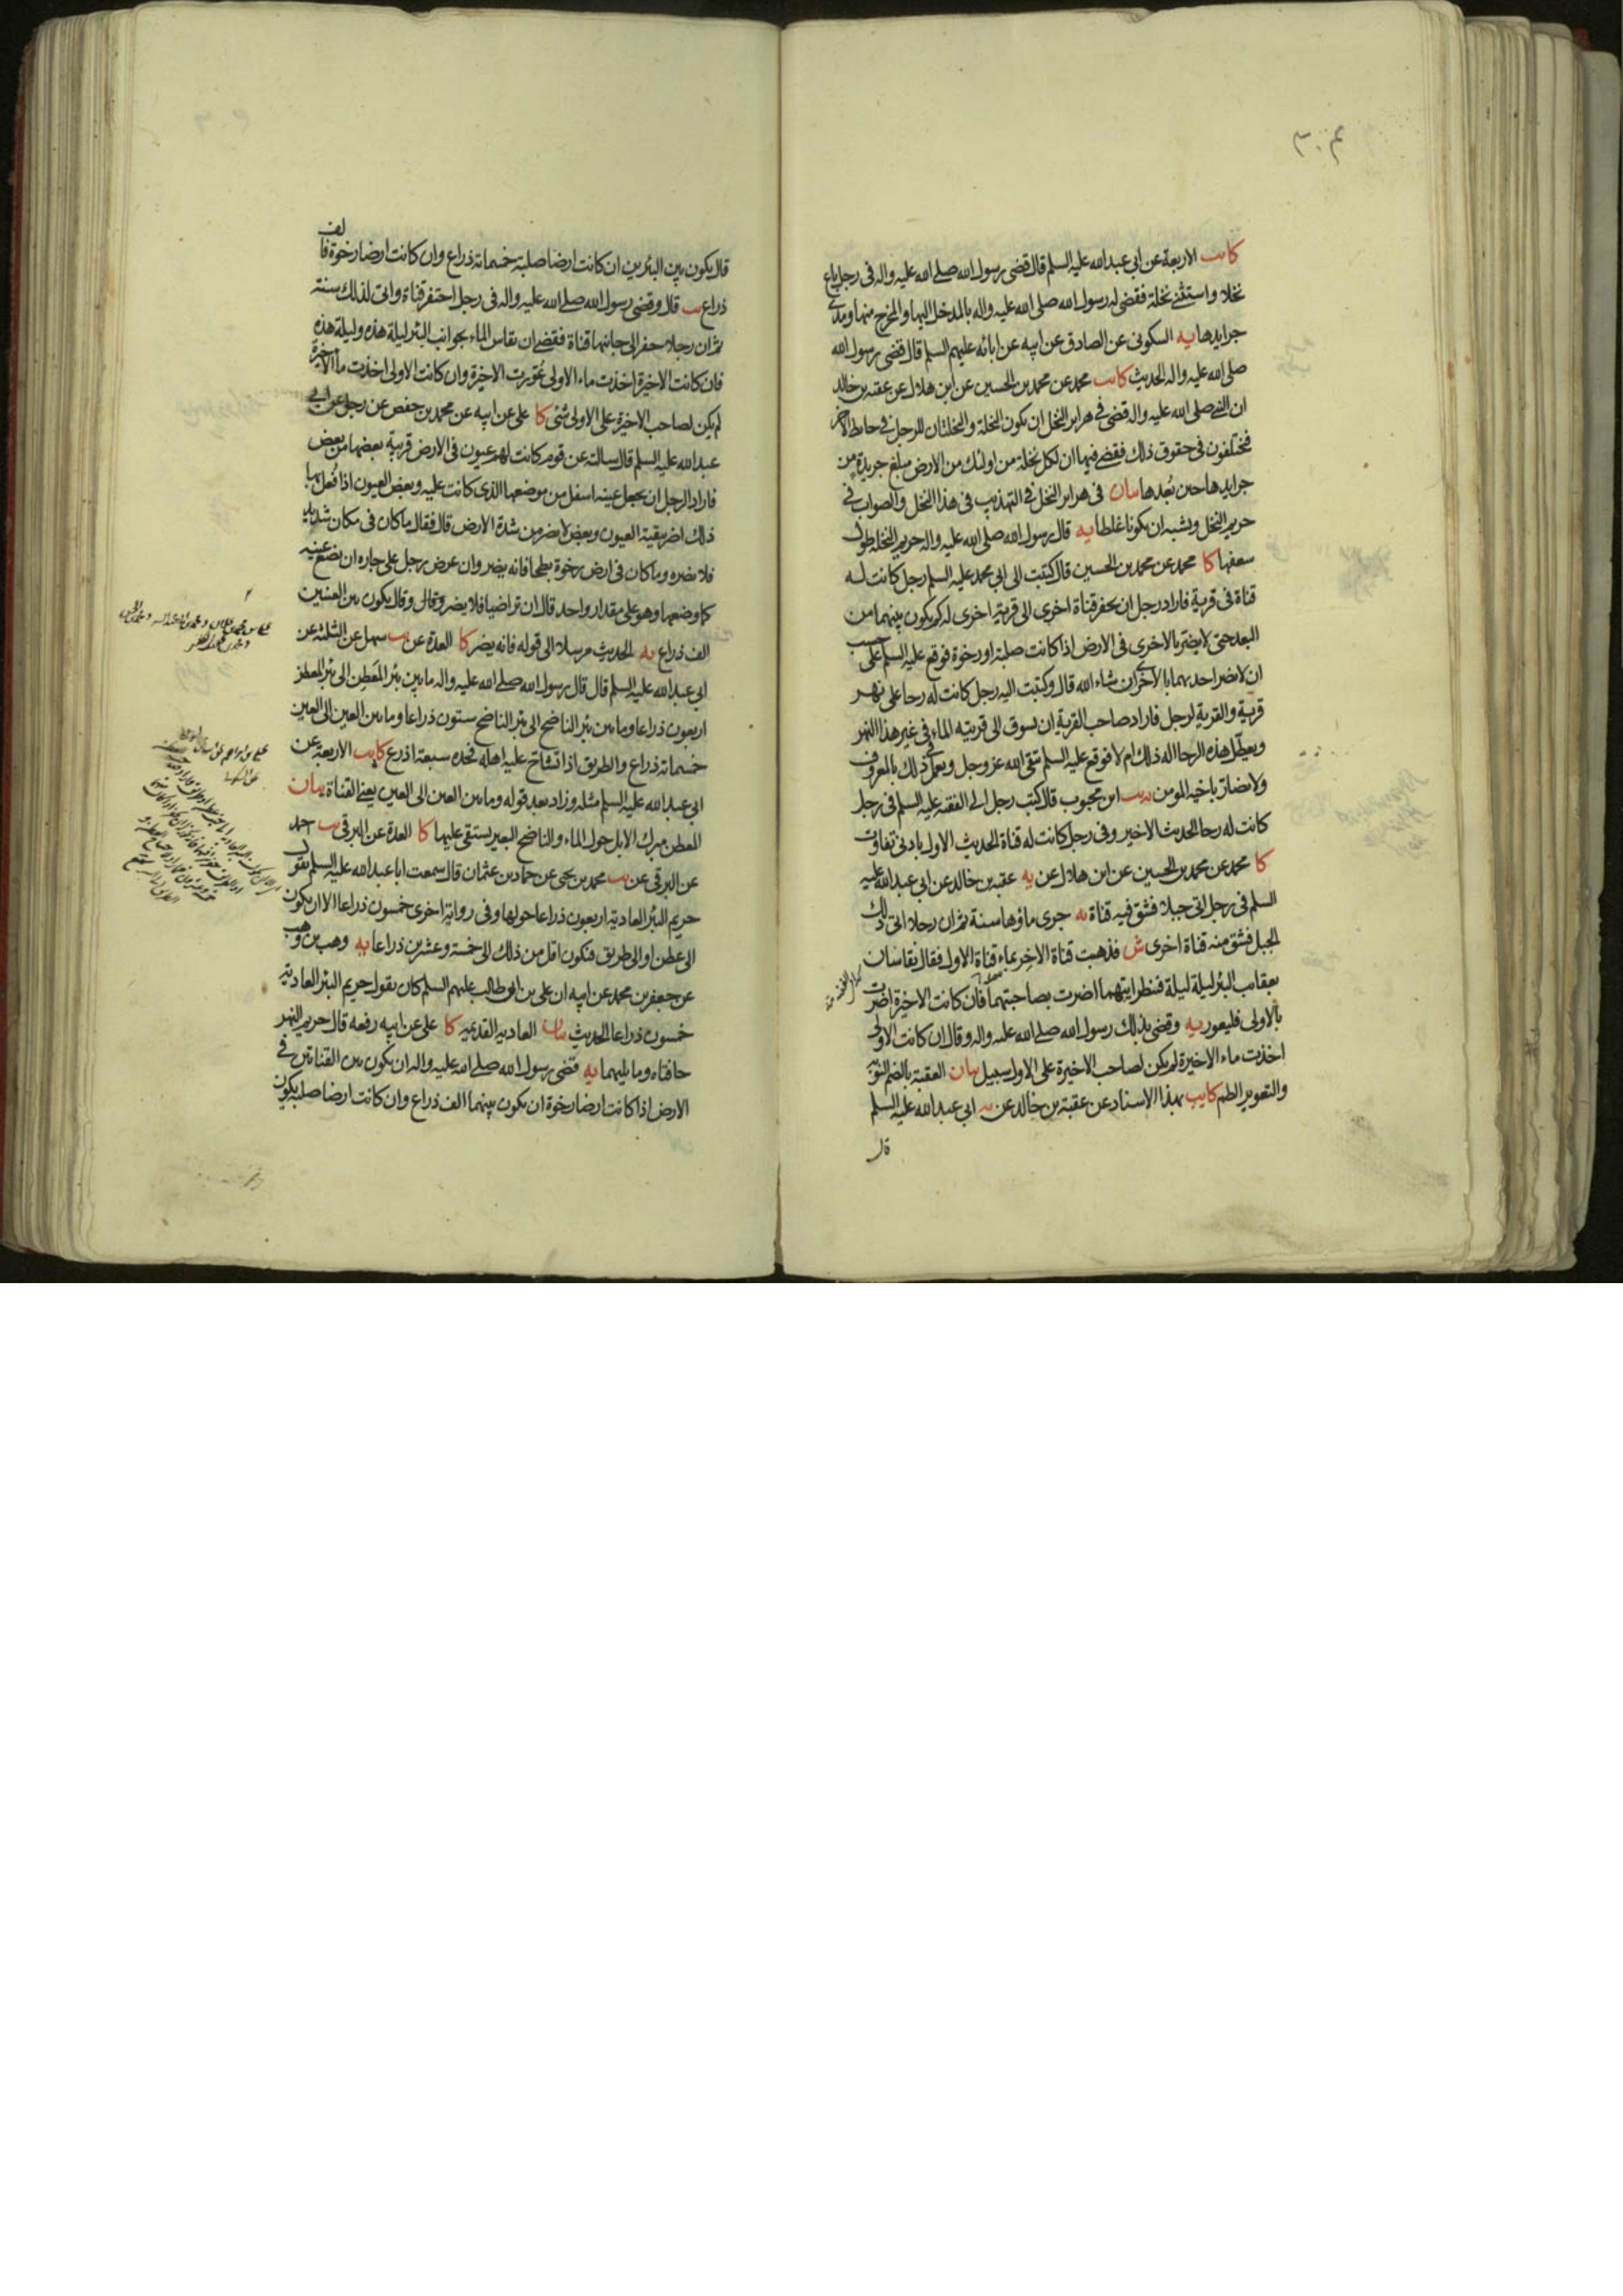 ٣٠٤
كا يب الاربعة عن ابي عبد الله عليه السلم قال قضى رسول الله صلى الله عليه واله في رجل باع
نخلا واستثنى نخلة فقضى له رسول الله صلى الله عليه واله بالمدخل اليها والمخرج منها ومدى
جرايدها يه السكونى عن الصادق عن ابيه عن ابائه عليهم السلم قال قضى رسول الله
صلى الله عليه واله الحديث كا يب محمد عن محمد بن الحسين عن ابن هلال عن عقبه بن خالد
ان النبي صلى الله عليه واله قضى في هراير النخل ان يكون النخلة والنخلتان للرجل في حايط الاخر
فيختلفون في حقوق ذلك فقضى فيها ان لكل نخلة من اولئك من الارض مبلغ جريدة من
جرايدها حين بُعدها بيان في هراير النخل في التهذيب في هذا النخل والصواب في
حريم النخل ويشبه ان يكونا غلطا يه قال رسول الله صلى الله عليه واله حريم النخلة طول
سعفها كا محمد عن محمد بن الحسين قال كتبت الى ابي محمد عليه السلم رجل كانت له
قناة في قرية فاراد رجل ان يحفر قناة اخرى الى قرية اخرى له كم يكون بينهما من
البعد حتى لا يضر بالاخرى في الارض اذا كانت صلبة او رخوة فوقع عليه السلم على حسب
ان لا يضر احديهما بالاخرى ان شاء الله قال وكتبت اليه رجل كانت له رحا على نهر
قرية والقرية لرجل فاراد صاحب القرية ان يسوق الى قريته الماء في غير هذا النهر
ويعطل هذه الرحا اله ذلك ام لا فوقع عليه السلم يتقى الله عز وجل ويعمل في ذلك بالمعروف
ولا يضار باخيه المومن يه يب ابن محبوب قال كتب رجل الى الفقيه عليه السلم في رجل
كانت له رحا الحديث الاخير وفي رجل كانت له قناة الحديث الاول بادنى تفاوت
كا محمد عن محمد بن الحسين عن ابن هلال عن يه عقبه بن خالد عن ابي عبد الله عليه
السلم في رجل اتى جبلا فشق فيه قناة يه جرى ماؤها سنة ثم ان رجلا اتى ذلك
الجبل فشق منه قناة اخرى ش فذهبت قناة الاخر بماء قناة الاول فقال يقاسان
بعقائب البئر ليلة ليلة فينظر ايتهما اضرت بصاحبتها فان كانت الاخيرة اضرت
بالاولى فليعور يه وقضى بذلك رسول الله صلى الله عليه واله وقال ان كانت الاولى
اخذت ماء الاخيرة لم يكن لصاحب الاخيرة على الاول سبيل بيان العقبة بالضم النوبة
والتعوير الطم كا يب بهذا الاسناد عن عقبة بن خالد عن يه ابي عبد الله عليه السلم
قال
قال يكون بين البئرين ان كانت ارضا صلبة خمسمائة ذراع وان كانت ارضا رخوة فالف
ذراع يب قال وقضى رسول الله صلى الله عليه واله في رجل احتفر قناة واتى لذلك سنة
ثم ان رجلا حفر الى جانبها قناة فقضى ان يقاس الماء بجوانب البئر ليلة هذه وليلة هذه
فان كانت الاخيرة اخذت ماء الاولى عُورت الاخيرة وان كانت الاولى اخذت ماء الاخيرة
لم يكن لصاحب الاخيرة على الاولى شئ كا على عن ابيه عن محمد بن حفص عن رجل عن ابي
عبد الله عليه السلم قال سالته عن قوم كانت لهم عيون في الارض قريبة بعضها من بعض
فاراد الرجل ان يجعل عينه اسفل من موضعها الذي كانت عليه وبعض العيون اذا فُعل بها
ذلك اضر ببقية العيون وبعض لا يضر من شدة الارض قال فقال ما كان في مكان شديد
فلا يضره وما كان في ارض رخوة بطحا فانه يضر وان عرض رجل على جاره ان يضع عينه
كما وضعها وهو على مقدار واحد قال ان تراضيا فلا يضر وقال وقال يكون بين العينين
الف ذراع يه الحديث مرسلا الى قوله فانه يضر كا العدة عن يب سهل عن الثلثة عن
ابي عبد الله عليه السلم قال قال رسول الله صلى الله عليه واله ما بين بئر المعطن الى بئر المعطن
اربعون ذراعا وما بين بئر الناضح الى بئر الناضح ستون ذراعا وما بين العين الى العين
خمسمائة ذراع والطريق اذا تشاح عليه اهله فحده سبعة اذرع كا يب الاربعة عن
ابي عبد الله عليه السلم مثله وزاد بعد قوله وما بين العين الى العين يعني القناة بيان
المعطن مبرك الابل حول الماء والناضح البعير يستقى عليها كا العدة عن البرقي يب احمد
عن البرقي عن يب محمد بن يحيى عن حماد بن عثمان قال سمعت ابا عبد الله عليه السلم يقول
حريم البئر العادية اربعون ذراعا حولها وفي رواية اخرى خمسون ذراعا الا ان يكون
الى عطن او الى طريق فيكون اقل من ذلك الى خمسة وعشرين ذراعا يه وهب بن وهب
عن جعفر بن محمد عن ابيه ان علي بن ابي طالب عليهم السلم كان يقول حريم البئر العادية
خمسون ذراعا الحديث بيان العادية القديمه كا على عن ابيه رفعه قال حريم النهر
حافتاه وما يليهما يه قضى رسول الله صلى الله عليه واله ان يكون بين القناتين في
الارض اذا كانت ارضا رخوة ان يكون بينهما الف ذراع وان كانت ارضا صلبة يكون